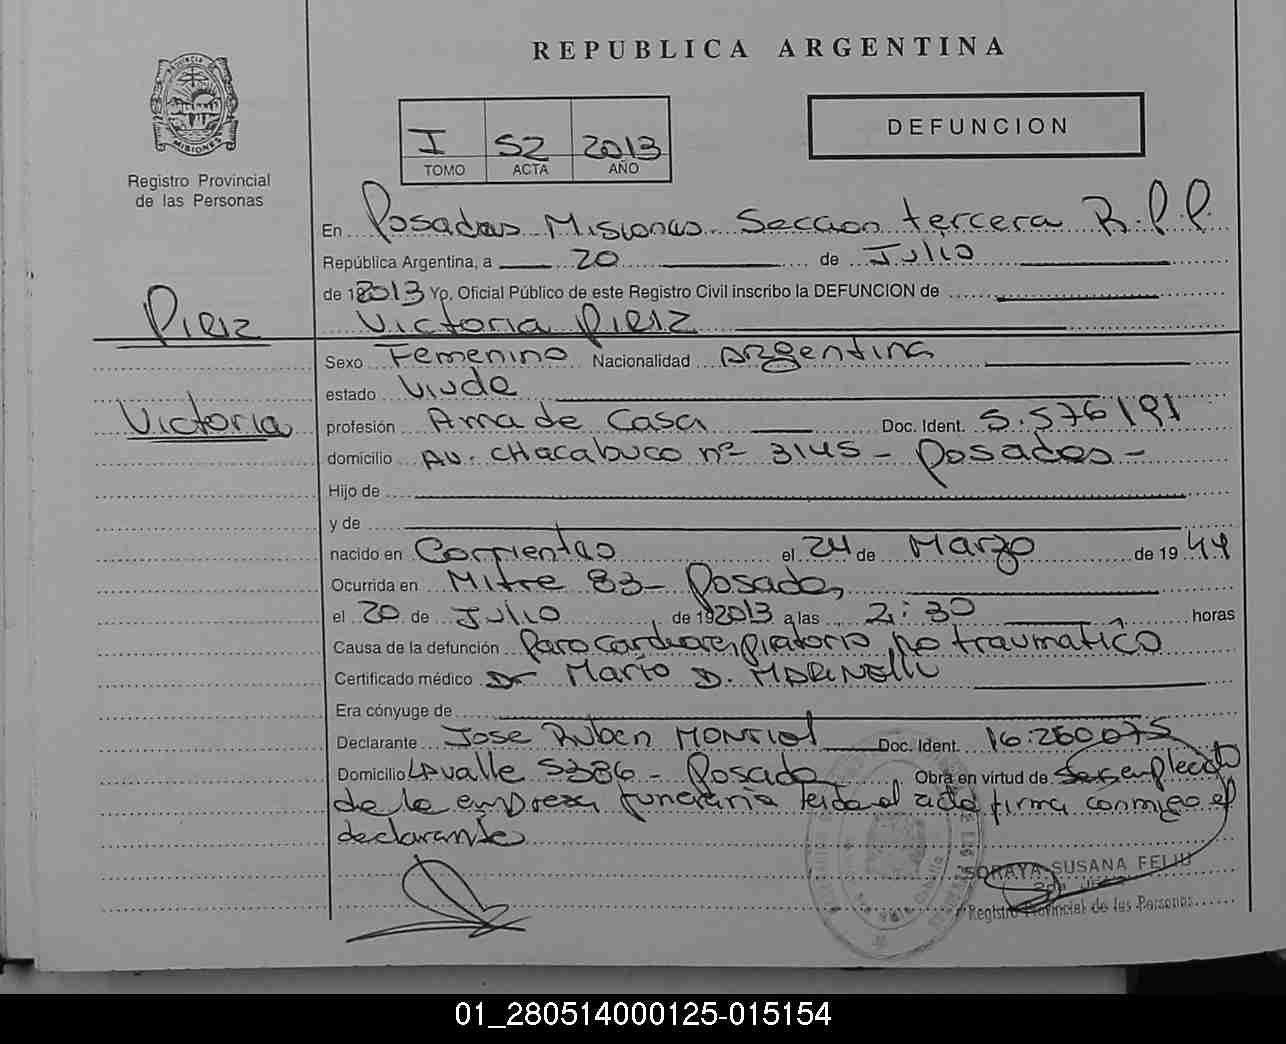 REPUBLICA ARGENTINA
PROVINCIA DE
MISIONES
Registro Provincial
de las Personas
I 52 2013
TOMO ACTA AÑO
DEFUNCION
En Posadas Misiones Seccion tercera R.P.P.
República Argentina, a 20 de Julio
de 2013 Yo, Oficial Público de este Registro Civil inscribo la DEFUNCION de
Victoria Piriz
Piriz
Sexo Femenino Nacionalidad Argentina
estado Viuda
Victoria
profesión Ama de Casa Doc. Ident. 5.576191
domicilio Av. CHacabuco nº 3145 - Posadas -
Hijo de
y de
nacido en Corrientes el 24 de Marzo de 1944
Ocurrida en Mitre 83 - Posadas
el 20 de Julio de 192013 a las 2:30 horas
Causa de la defunción Paro cardiorespiratorio no traumatico
Certificado médico Dr Mario D. MARINELLI
Era cónyuge de
Declarante Jose Ruben MONTIEL Doc. Ident. 16.260.075
Domicilio Lavalle 5386 - Posadas Obra en virtud de Ser empleado
de la empresa funeraria leida el acta firma conmigo el
declarante
SORAYA SUSANA FELIU
Registro Provincial de las Personas
01_280514000125-015154